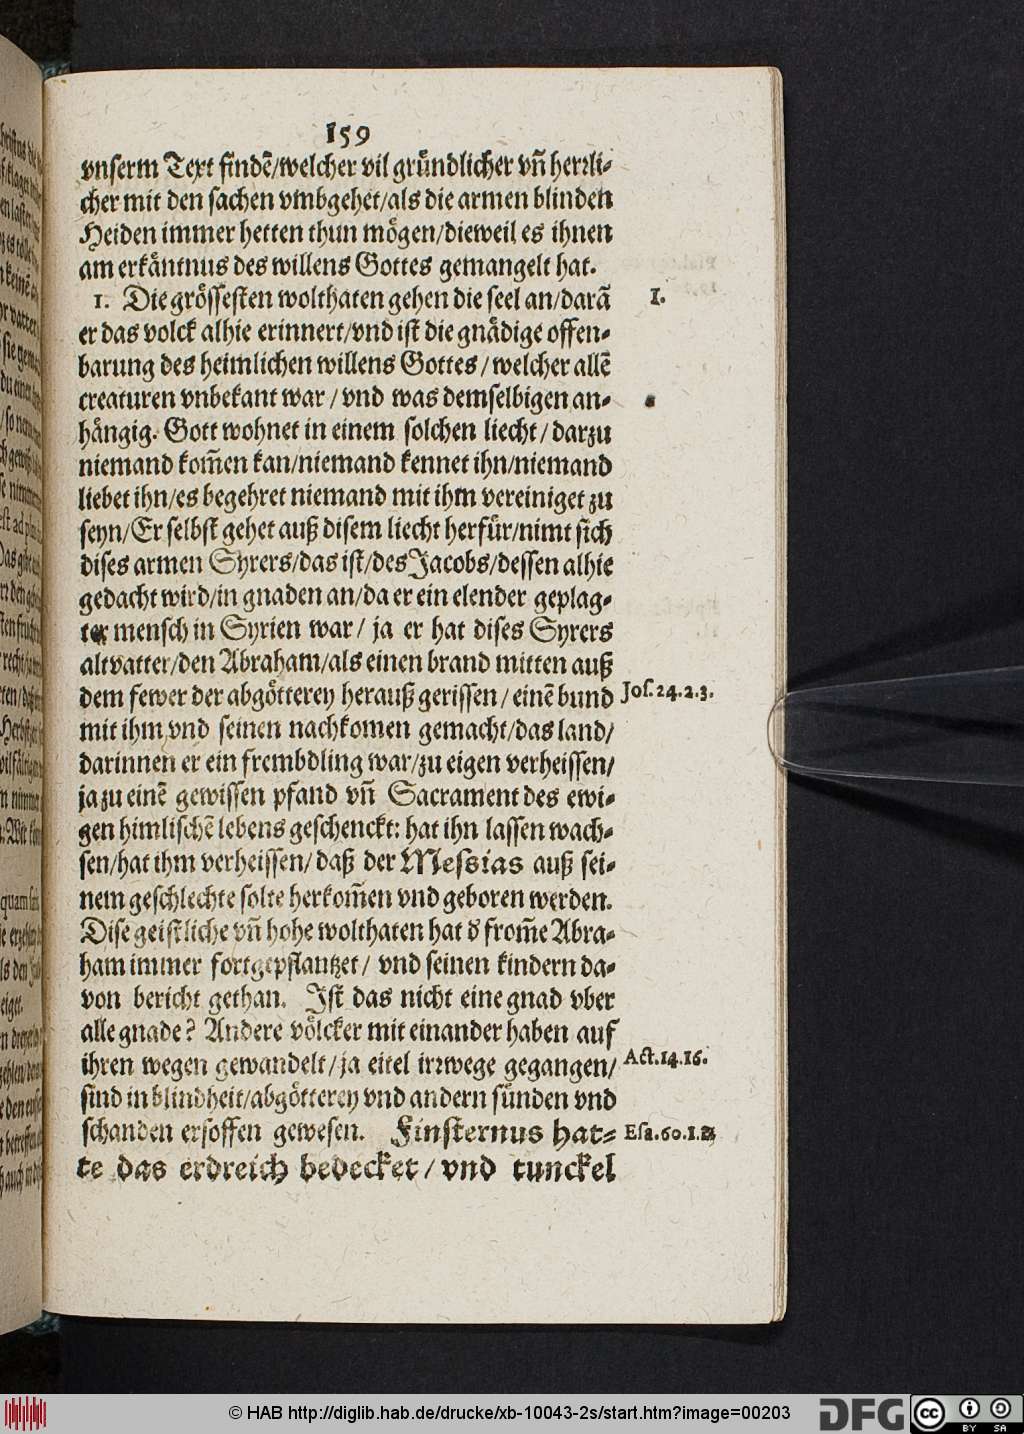 159
vnserm Text findē/welcher vil gründlicher vn̄ herrli-
cher mit den sachen vmbgehet/als die armen blinden
Heiden immer hetten thun mögen/dieweil es ihnen
am erkäntnus des willens Gottes gemangelt hat.
1. Die grössesten wolthaten gehen die seel an/darā
1.
er das volck alhie erinnert/vnd ist die gnädige offen-
barung des heimlichen willens Gottes/welcher allē
creaturen vnbekant war/vnd was demselbigen an-
hängig. Gott wohnet in einem solchen liecht/darzu
niemand kom̄en kan/niemand kennet ihn/niemand
liebet ihn/es begehret niemand mit ihm vereiniget zu
seyn/Er selbst gehet auß disem liecht herfür/nimt sich
dises armen Syrers/das ist/des Jacobs/dessen alhie
gedacht wird/in gnaden an/da er ein elender geplag-
ter mensch in Syrien war/ ja er hat dises Syrers
altvatter/den Abraham/als einen brand mitten auß
dem fewer der abgötterey herauß gerissen/einē bund
Jos. 24. 2. 3.
mit ihm vnd seinen nachkomen gemacht/das land/
darinnen er ein frembdling war/zu eigen verheissen/
ja zu einē gewissen pfand vn̄ Sacrament des ewi-
gen himlischē lebens geschenckt: hat ihn lassen wach-
sen/hat ihm verheissen/daß der Messias auß sei-
nem geschlechte solte herkom̄en vnd geboren werden.
Dise geistliche vn̄ hohe wolthaten hat d̕ from̄e Abra-
ham immer fortgepflantzet/ vnd seinen kindern da-
von bericht gethan. Ist das nicht eine gnad vber
alle gnade? Andere völcker mit einander haben auf
ihren wegen gewandelt/ja eitel irrwege gegangen/
Act. 14. 16.
sind in blindheit/abgötterey vnd andern sünden vnd
schanden ersoffen gewesen. Finsternus hat-
Esa. 60. 1. 2.
te das erdreich bedecket/vnd tunckel
© HAB http://diglib.hab.de/drucke/xb-10043-2s/start.htm?image=00203
DFG
cc
BY SA